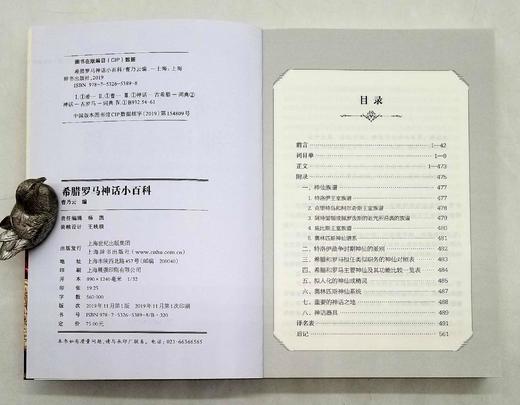 图书在版编目（CIP）数据
希腊罗马神话小百科/曹乃云编. —上海：上海
辞书出版社，2019
ISBN 978-7-5326-5389-8
Ⅰ.①希… Ⅱ.①曹… Ⅲ.①神话—古希腊—词典②
神话—古罗马—词典 Ⅳ.①B932.54-61
中国版本图书馆CIP数据核字（2019）第154809号
希腊罗马神话小百科
曹乃云 编
责任编辑 杨凯
装帧设计 王轶颀
出版发行 上海世纪出版集团
上海辞书出版社
地 址 上海市陕西北路457号（邮编 200040）
印 刷 上海展强印刷有限公司
开 本 890×1240毫米 1/32
印 张 19.25
字 数 560 000
版 次 2019年11月第1版 2019年11月第1次印刷
书 号 ISBN 978-7-5326-5389-8/B·320
定 价 75.00元
本书如有质量问题，请与承印厂联系。电话：021-66366565
目 录
前言 1—42
词目单 1—8
正文 1—473
附录 475
一、神仙族谱 477
1. 特洛伊王室族谱 477
2. 克里特岛和阿尔奇斯王室族谱 477
3. 阿特雷颉坡佩罗波斯的近光所召唤的族谱 478
4. 底比斯王室族谱 478
5. 奥林匹斯神仙谱系 479
二、特洛伊战争时期神仙的差别 480
三、希腊和罗马担任类似职务的神仙对照表 480
四、希腊和罗马主要神仙及其功能比较一览表 481
五、拟人化的神仙或精灵 485
六、奥林匹斯神仙系统 487
七、重要的神话之地 487
八、神话器具 489
译名表 491
后记 561